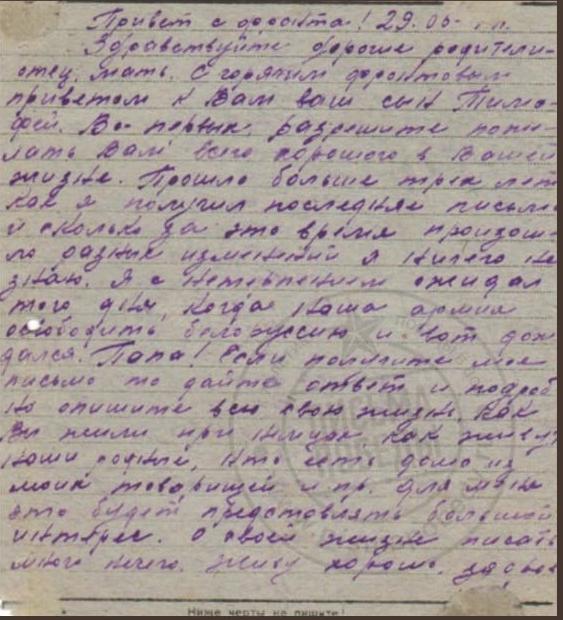 Привет с фронта! 29.06-
Здравствуйте дорогие родители-
отец, мать. С горячим фронтовым
приветом к Вам ваш сын Тимо-
фей. Во-первых, разрешите поже-
лать Вам всего хорошого в Вашей
жизне. Прошло больше трех лет
как я получил последнее письмо
и сколько за это время произош-
ло разных изменений я ничего не
знаю. Я с нетерпением ожидал
того дня, когда наша армия
освободить белоруссию и вот дож
дался. Папа! Если получите мое
письмо то дайте ответ и подроб
но опишите всю свою жизнь как
Вы жили при немцах, как живут
наши родные, кто есть дома из
моих товарищей и пр. для меня
это будет представлять большой
интерес. О своей жизне писать
много нечего. Живу хорошо,
ПИСЬМА
ПОБЕДЫ
Ниже черты не пишите!